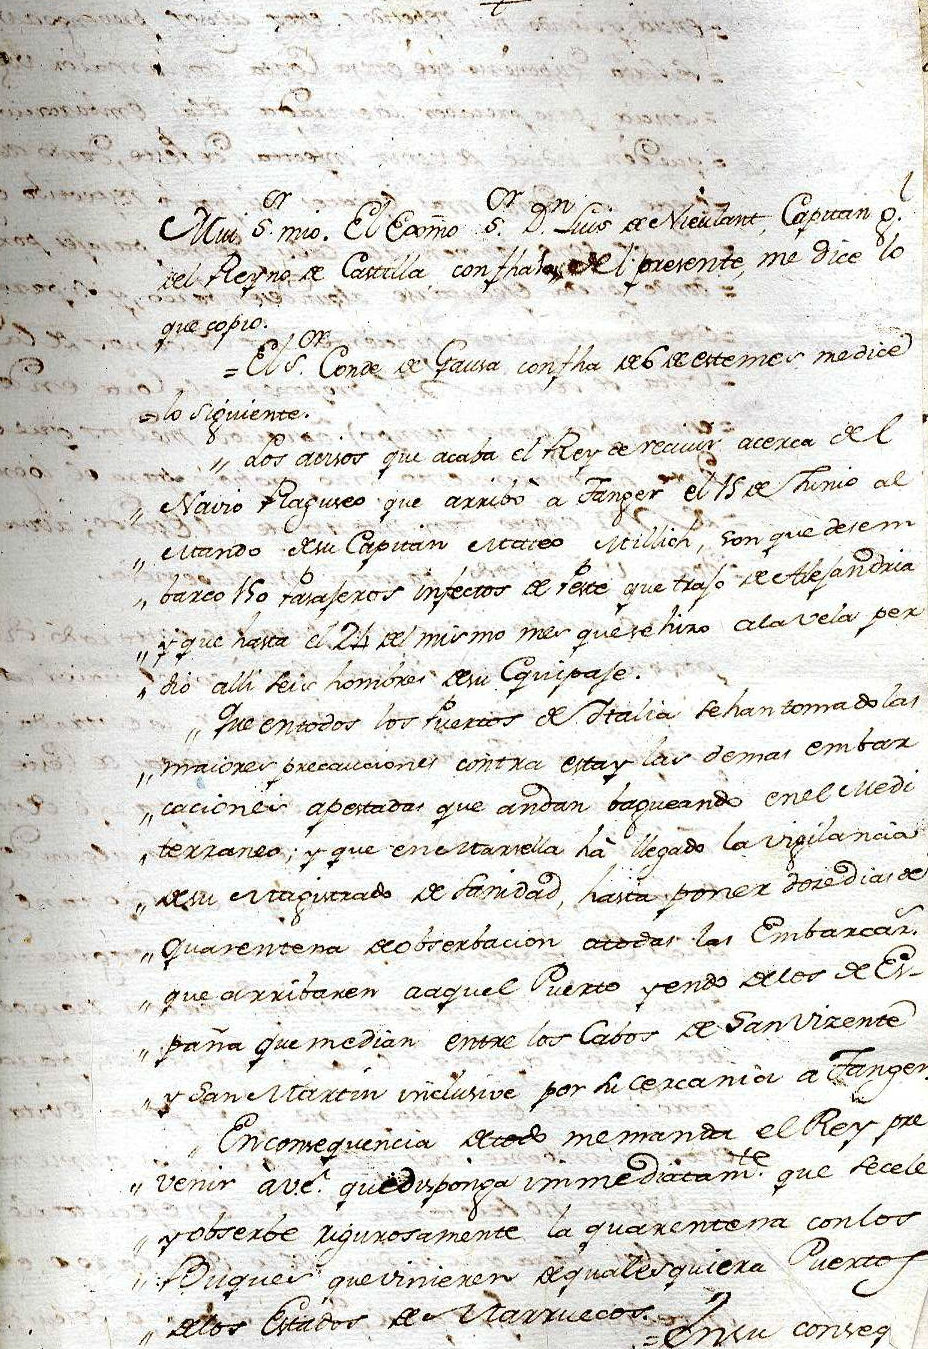 Mui S.or mio. El Exõmo S.or D.n Luis de Nieulant, Capitan g.l
del Reyno de Castilla, con fha de 10 del presente, me dice lo
que copio.
=El S.or Conde de Gausa con fha de 6 de este mes me dice
=lo siguiente.
„ Los avisos que acaba el Rey de recivir acerca del
„ Navio Raguseo que arribò a Tanger el 15 de Junio al
„ Mando de su Capitan Mateo Millich, son que desem
„ barco 150 Pasageros infectos de Peste que trajo de Alejandria
„ y que hasta el 24 del mismo mes que se hizo a la vela per
„ dió alli seis hombres de su Equipaje.
„ Que en todos los Puertos de Italia se han tomado las
„ maiores precauciones contra esta y las demas embar
„ caciones apestadas que andan bagueando en el Medi
„ terraneo; y que en Marsella hà llegado la vigilancia
„ de su Magistrado de Sanidad, hasta poner doze dias de
„ Quarentena de obserbacion a todas las Embarcan.s
„ que arribaren a aquel Puerto yendo de los de Es-
„ paña que median entre los Cabos de San Vizente
„ y San Martin inclusive por su cercania a Tanger.
„ En consequencia de todo me manda el Rey pre
„ venir à V.E. que disponga immediatam.te que se cele
„ y obserbe rigurosamente la quarentena con los
„ Buques que vinieren de qualesquiera Puertos
„ de los Estados de Marruecos.
=En su conseq